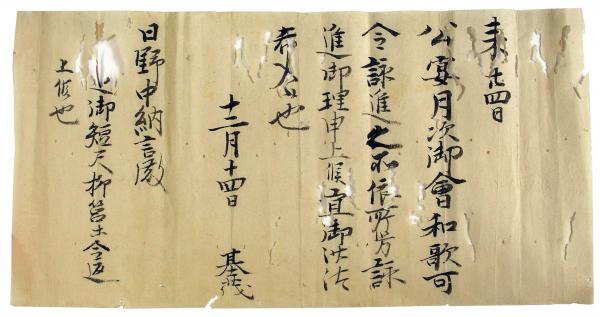 来廿四日
公宴月次御會和歌可
令詠進之不依所労詠
進御理申上候宜御沙汰
者也
十二月十四日 基茂
日野中納言殿
御短尺柳筥土令返
上候也